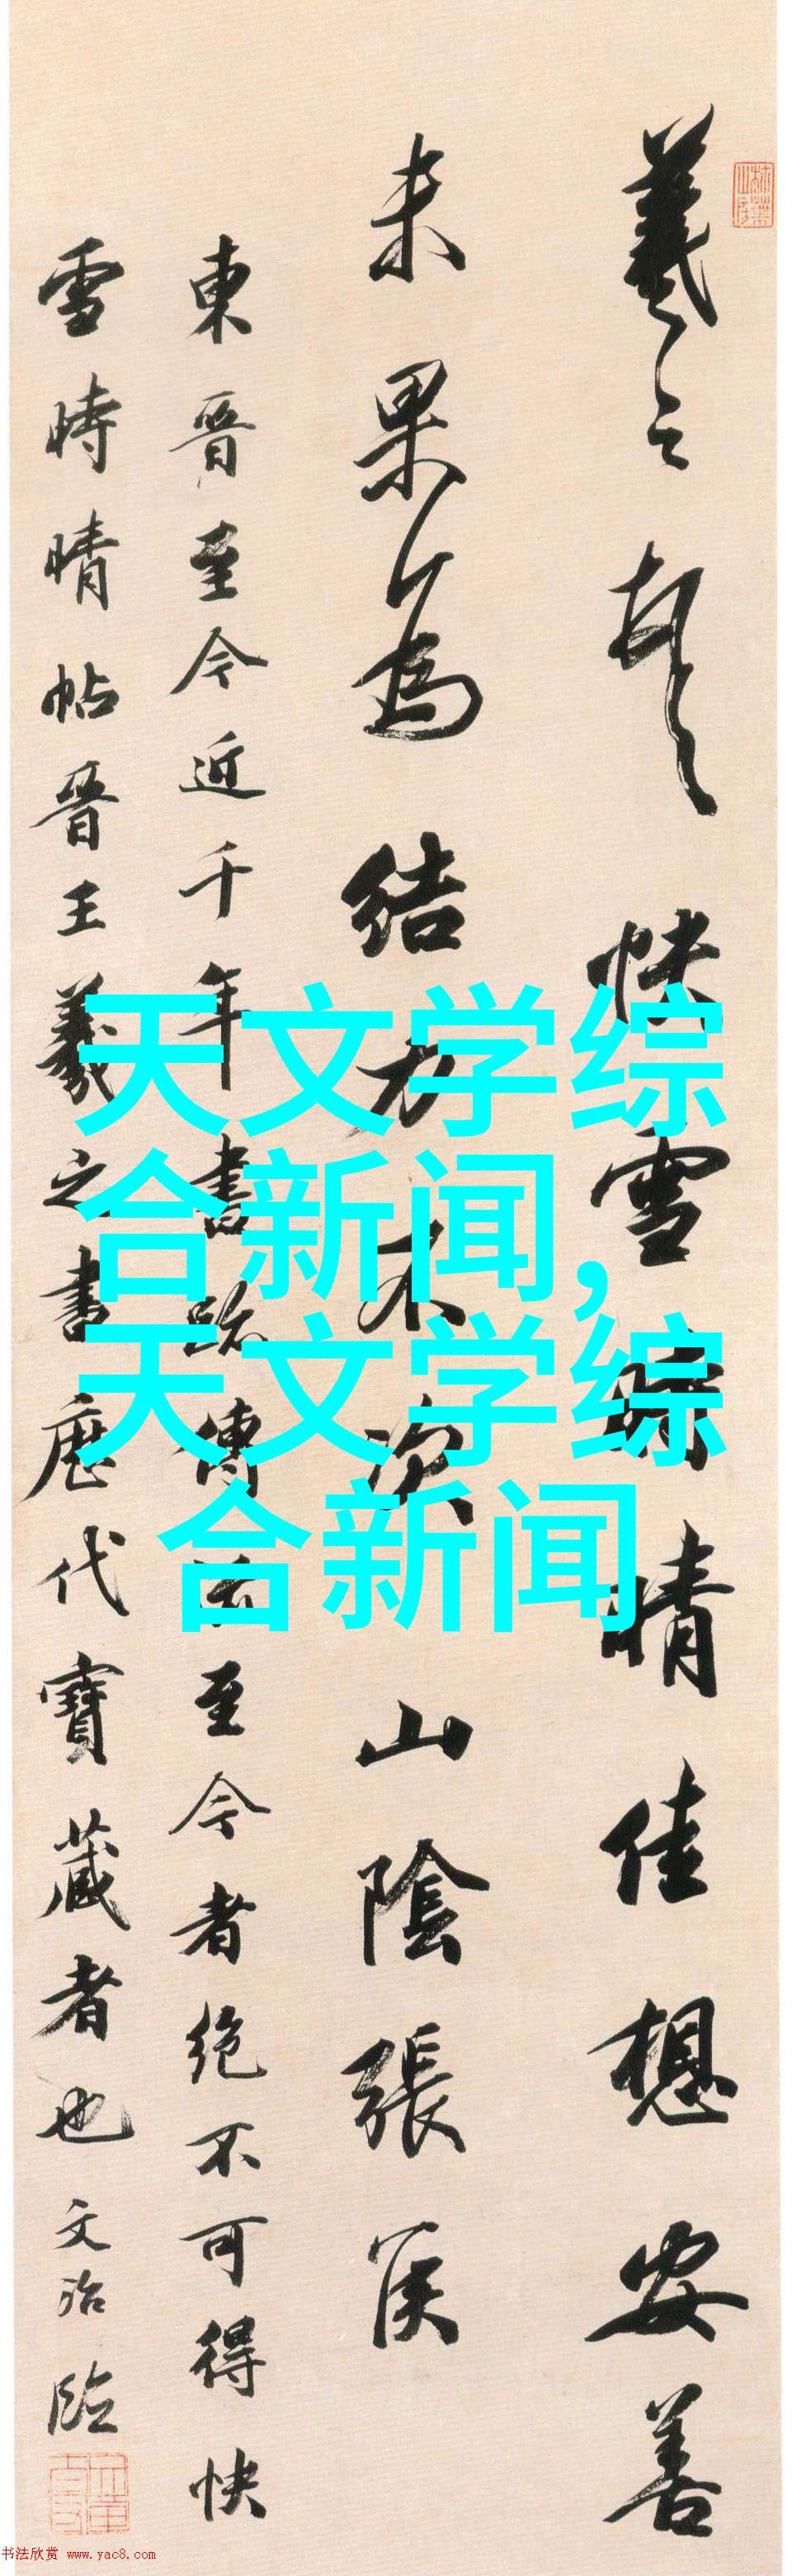 羲之頓首快雪時晴佳想安善
未果為結力不次山陰張侯
東晉至今近千年書跡傳流至今者絕不可得快
雪時晴帖晉王羲之書歷代寶藏者也文治臨
天文学综
合新闻,
天文学综
合新闻
书法欣赏 www.yac8.com